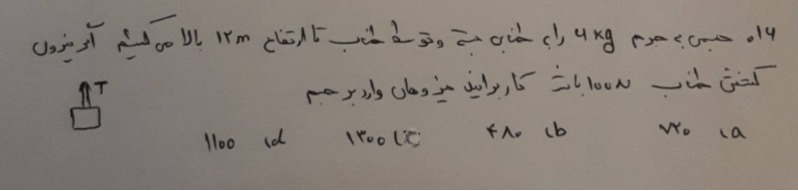 ۱۴. جسمی به جرم 4 kg را به طناب بسته و توسط طناب تا ارتفاع ۱۲m بالا می‌کشیم اگر نیروی
کشش طناب ۱۰۰N باشد کار برایند نیروهای وارد بر جسم
T
a) ۷۲۰ b) ۴۸۰ c) ۱۳۰۰ d) ۱۱۰۰